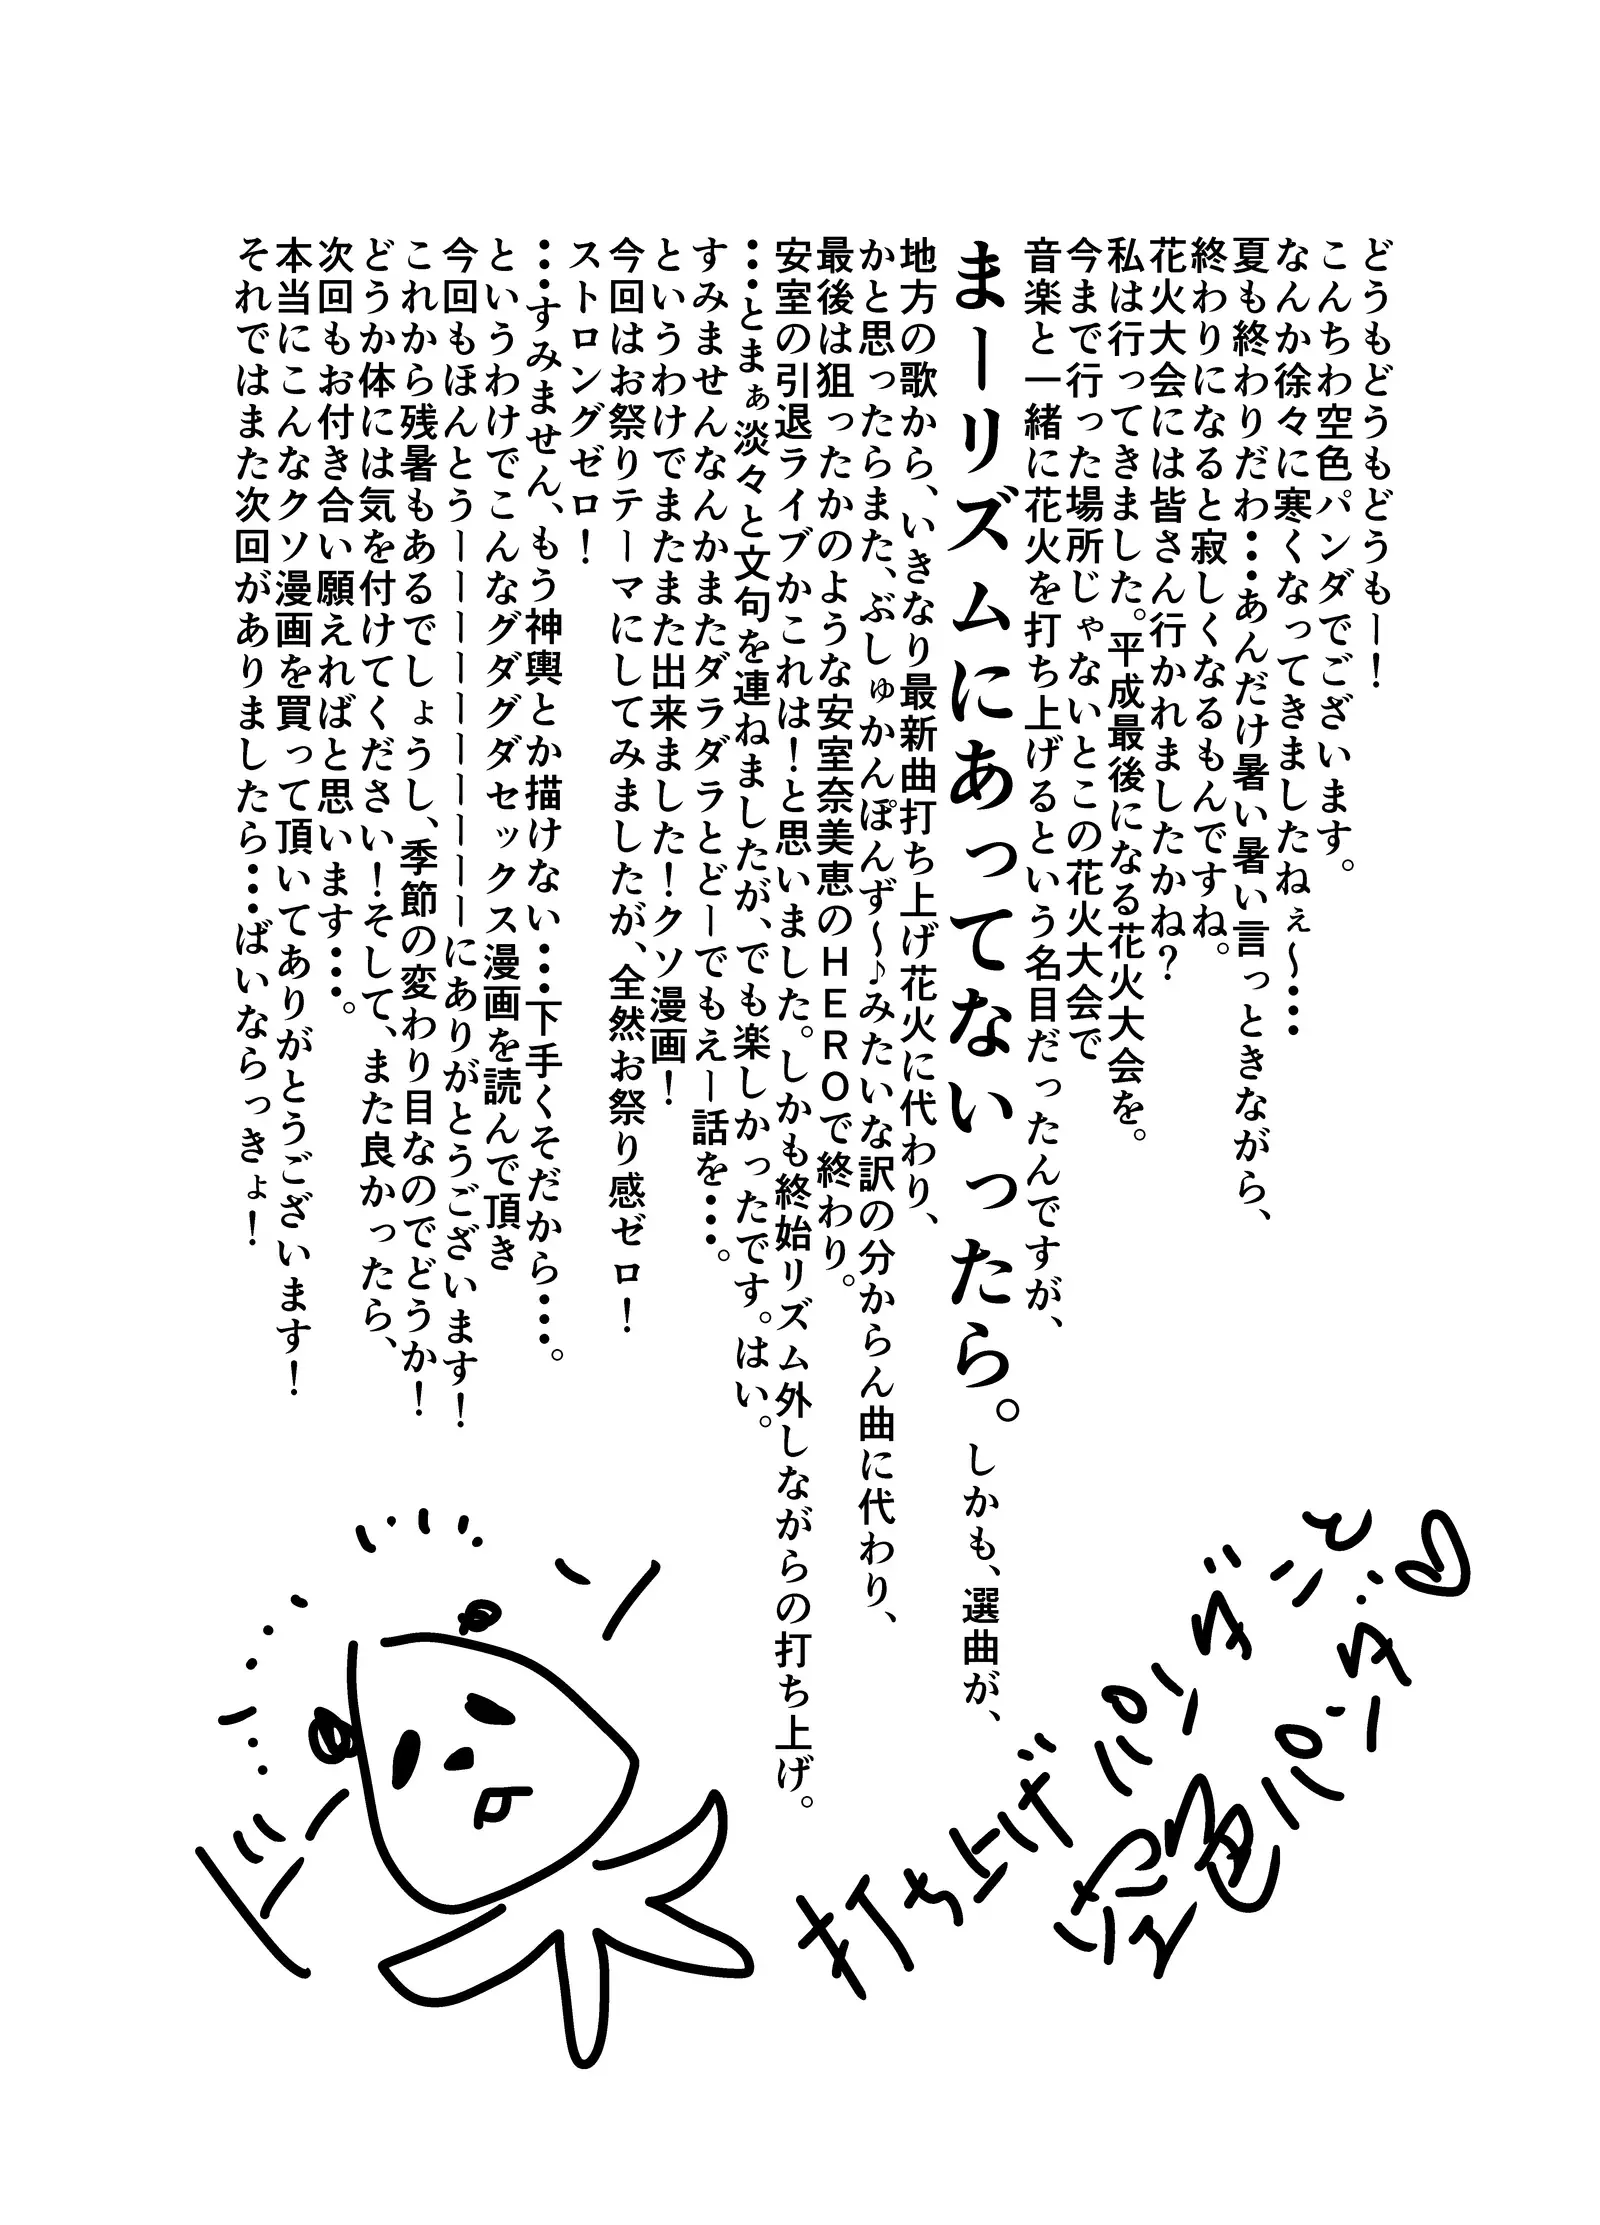 どうもどうもどうもー！
こんちわ空色パンダでございます。
なんか徐々に寒くなってきましたねぇ～･･･
夏も終わりだわ･･･あんだけ暑い暑い言っときながら、
終わりになると寂しくなるもんですね。
花火大会には皆さん行かれましたかね？
私は行ってきました。平成最後になる花火大会を。
今まで行った場所じゃないとこの花火大会で
音楽と一緒に花火を打ち上げるという名目だったんですが、
まーリズムにあってないったら。しかも、選曲が、
地方の歌から、いきなり最新曲打ち上げ花火に代わり、
かと思ったらまた、ぶしゅかんぽんず～♪みたいな訳の分からん曲に代わり、
最後は狙ったかのような安室奈美恵のＨＥＲＯで終わり。
安室の引退ライブかこれは！と思いました。しかも終始リズム外しながらの打ち上げ。
･･･とまぁ淡々と文句を連ねましたが、でも楽しかったです。はい。
すみませんなんかまたダラダラとどーでもえー話を･･･。
というわけでまたまた出来ました！クソ漫画！
今回はお祭りテーマにしてみましたが、全然お祭り感ゼロ！
ストロングゼロ！
･･･すみません、もう神輿とか描けない･･･下手くそだから･･･。
というわけでこんなグダグダセックス漫画を読んで頂き
今回もほんとうーーーーーーーーーーにありがとうございます！
これから残暑もあるでしょうし、季節の変わり目なのでどうか！
どうか体には気を付けてください！そして、また良かったら、
次回もお付き合い願えればと思います･･･。
本当にこんなクソ漫画を買って頂いてありがとうございます！
それではまた次回がありましたら･･･ばいならっきょ！
打ち上げパンダこと･･･♡
空色パンダ
ドーン